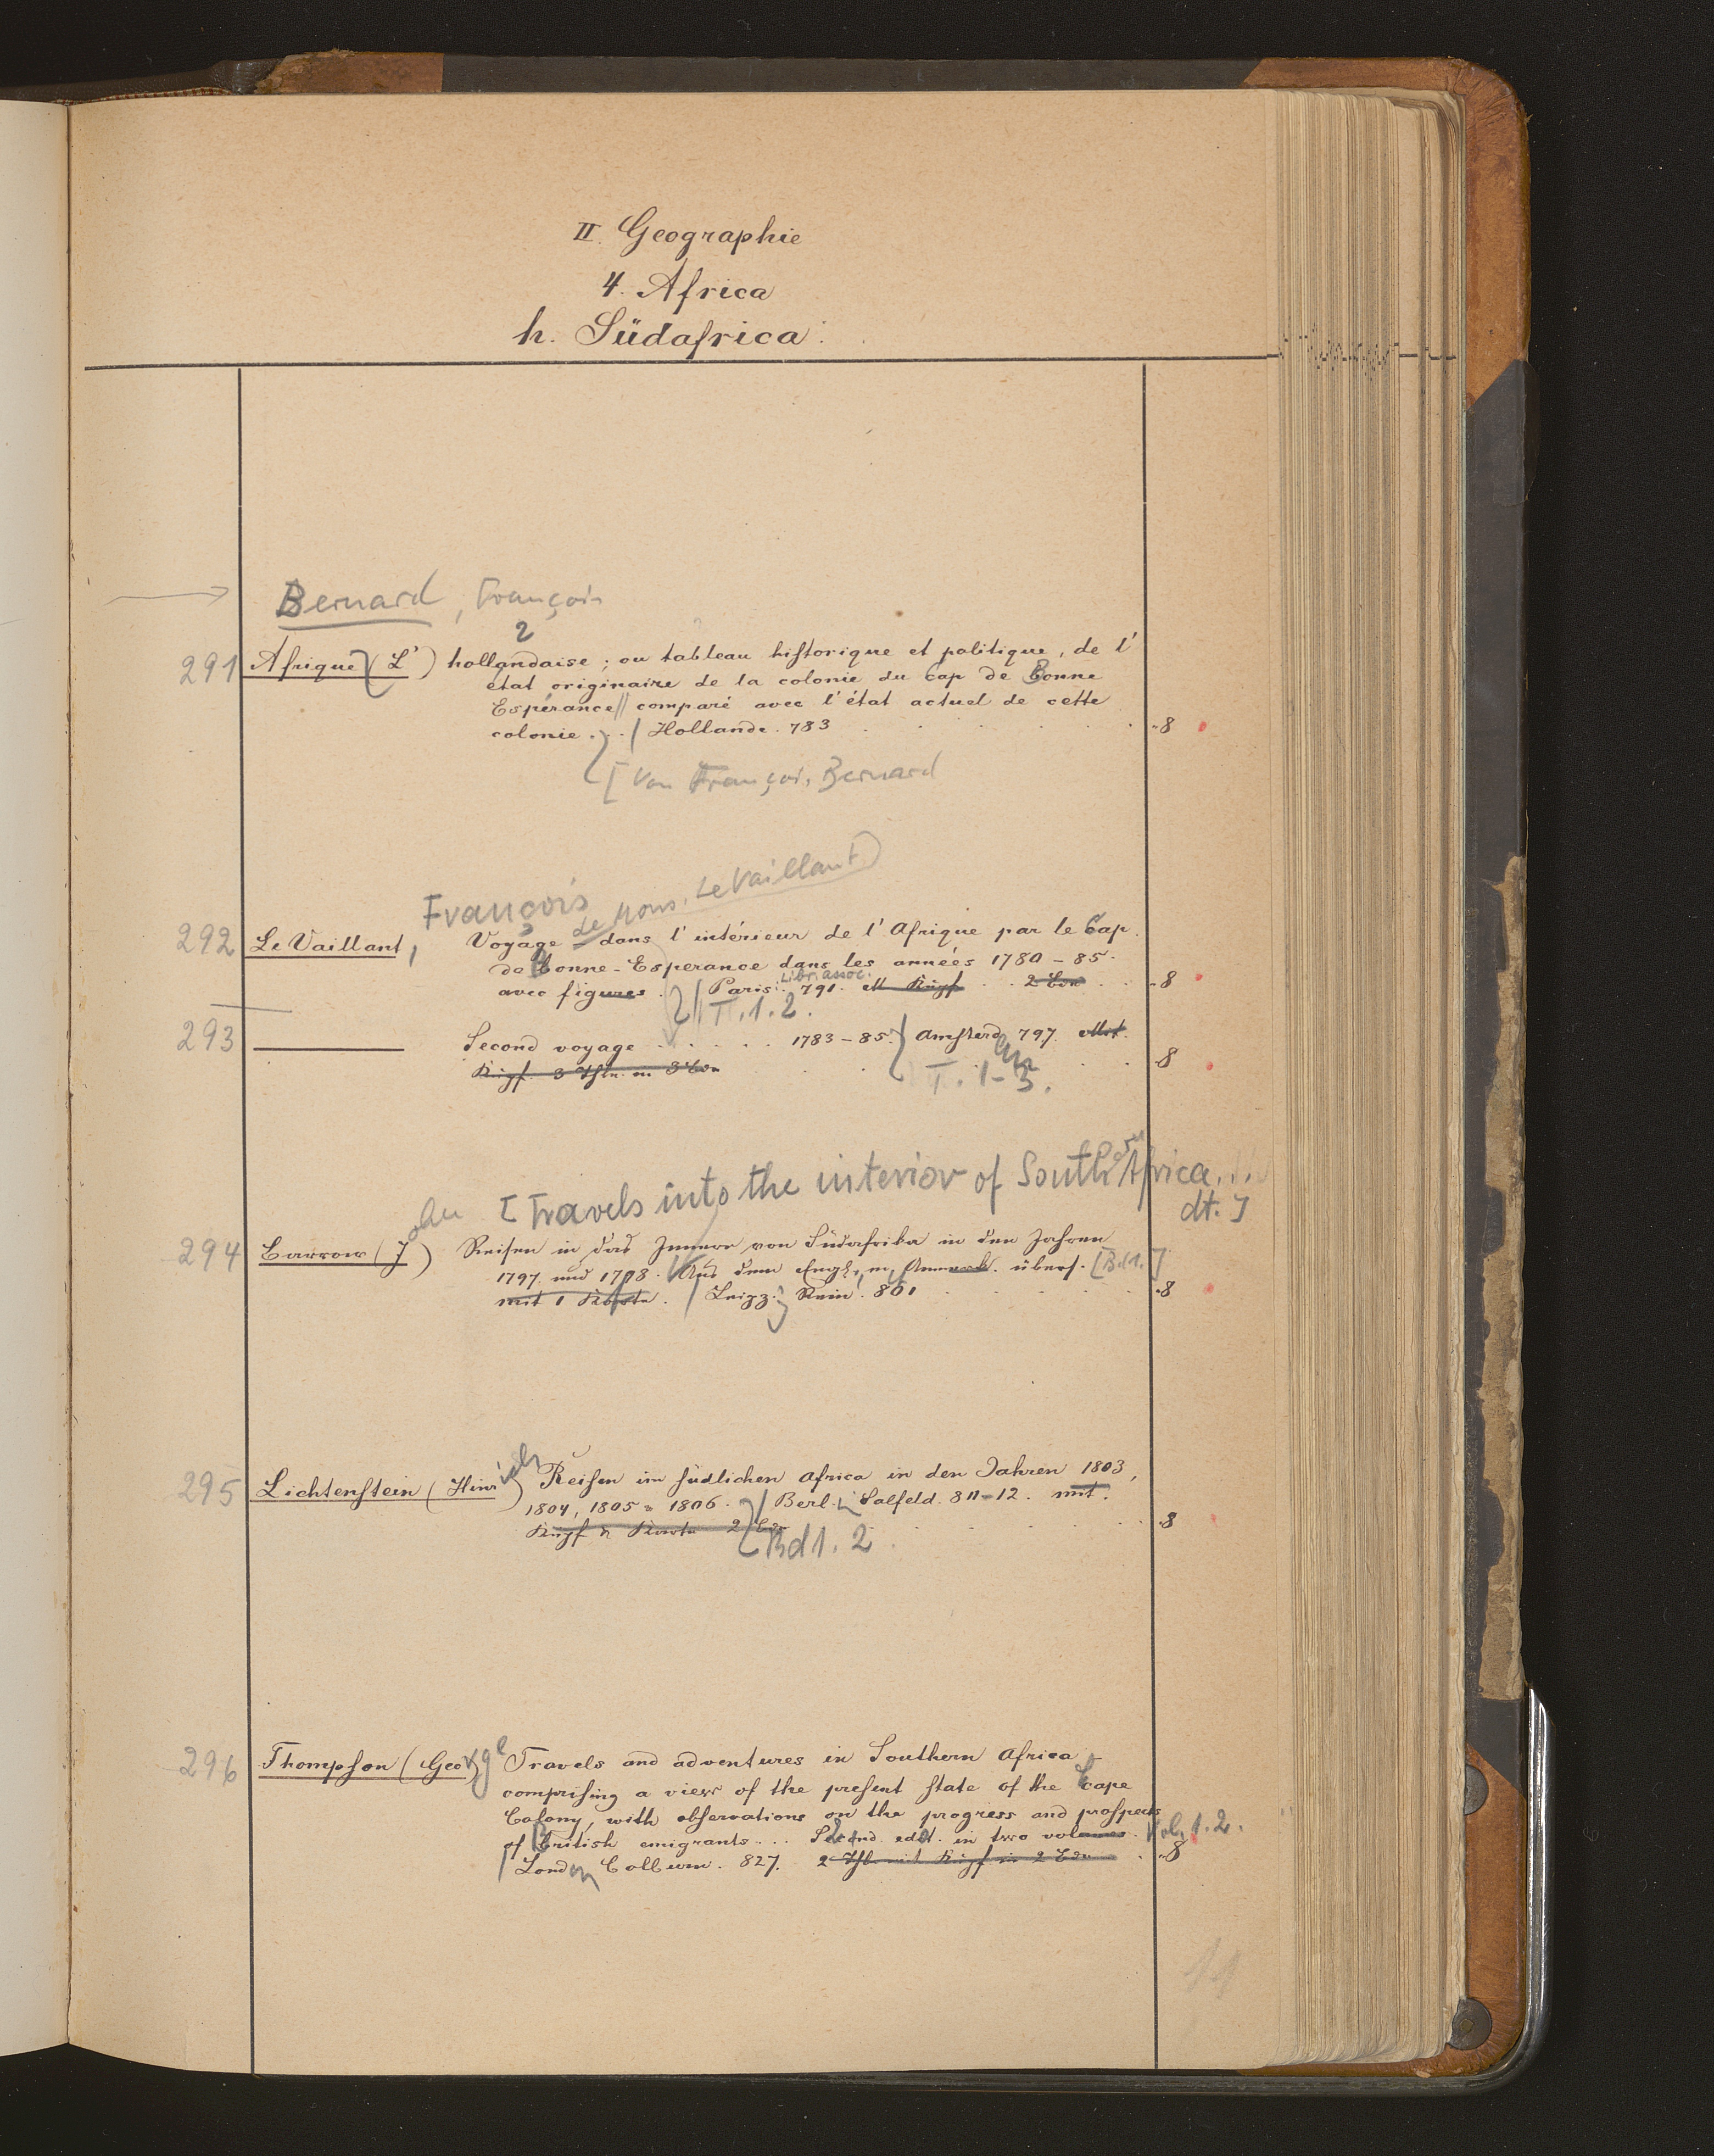 II. Geographie
4. Africa
h. Südafrica.
Bernard, François
2
291 Afrique (L') hollandaise; ou tableau historique et politique, de l'
état originaire de la colonie du Cap de Bonne
Espérance // comparé avec l'état actuel de cette
colonie . . / Hollande. 783 8
[Von François Bernard
François de Mons. Le Vaillant
292 Le Vaillant, Voyage dans l'intérieur de l'Afrique par le Cap.
de Bonne-Esperance dans les années 1780-85.
Libr. assoc.
avec figures. / Paris. 791. M Kupf 2 Bde 8
T. 1. 2.
293 ——— Second voyage . . . . . 1783-85. Amsterdam 797. Mit.
Kupf. 3 Thle. in 3 Bdn 8
T. 1-3.
[Travels into the interior of Southern Africa...
dt.]
294 Barrow (John) Reisen in das Innere von Südafrika in den Jahren
1797 und 1798. Aus dem Engl., m. Anmerk. übers. [Bd 1.]
mit 1 Karte. / Leipz. Rein. 801 8
295 Lichtenstein (Hinrich) Reisen im südlichen Africa in den Jahren 1803,
1804, 1805 u 1806. / Berl. Salfeld. 811-12. mit.
Kupf u Karte 2 Bde 8
Bd 1. 2.
296 Thompson (George) Travels and adventures in Southern Africa
comprising a view of the present state of the Cape
Colony, with observations on the progress and prospects
of British emigrants... Second edit. in two volumes. Vol. 1. 2.
/ London Colburn. 827. 2 Thl. mit Kupf in 2 Bdn 8